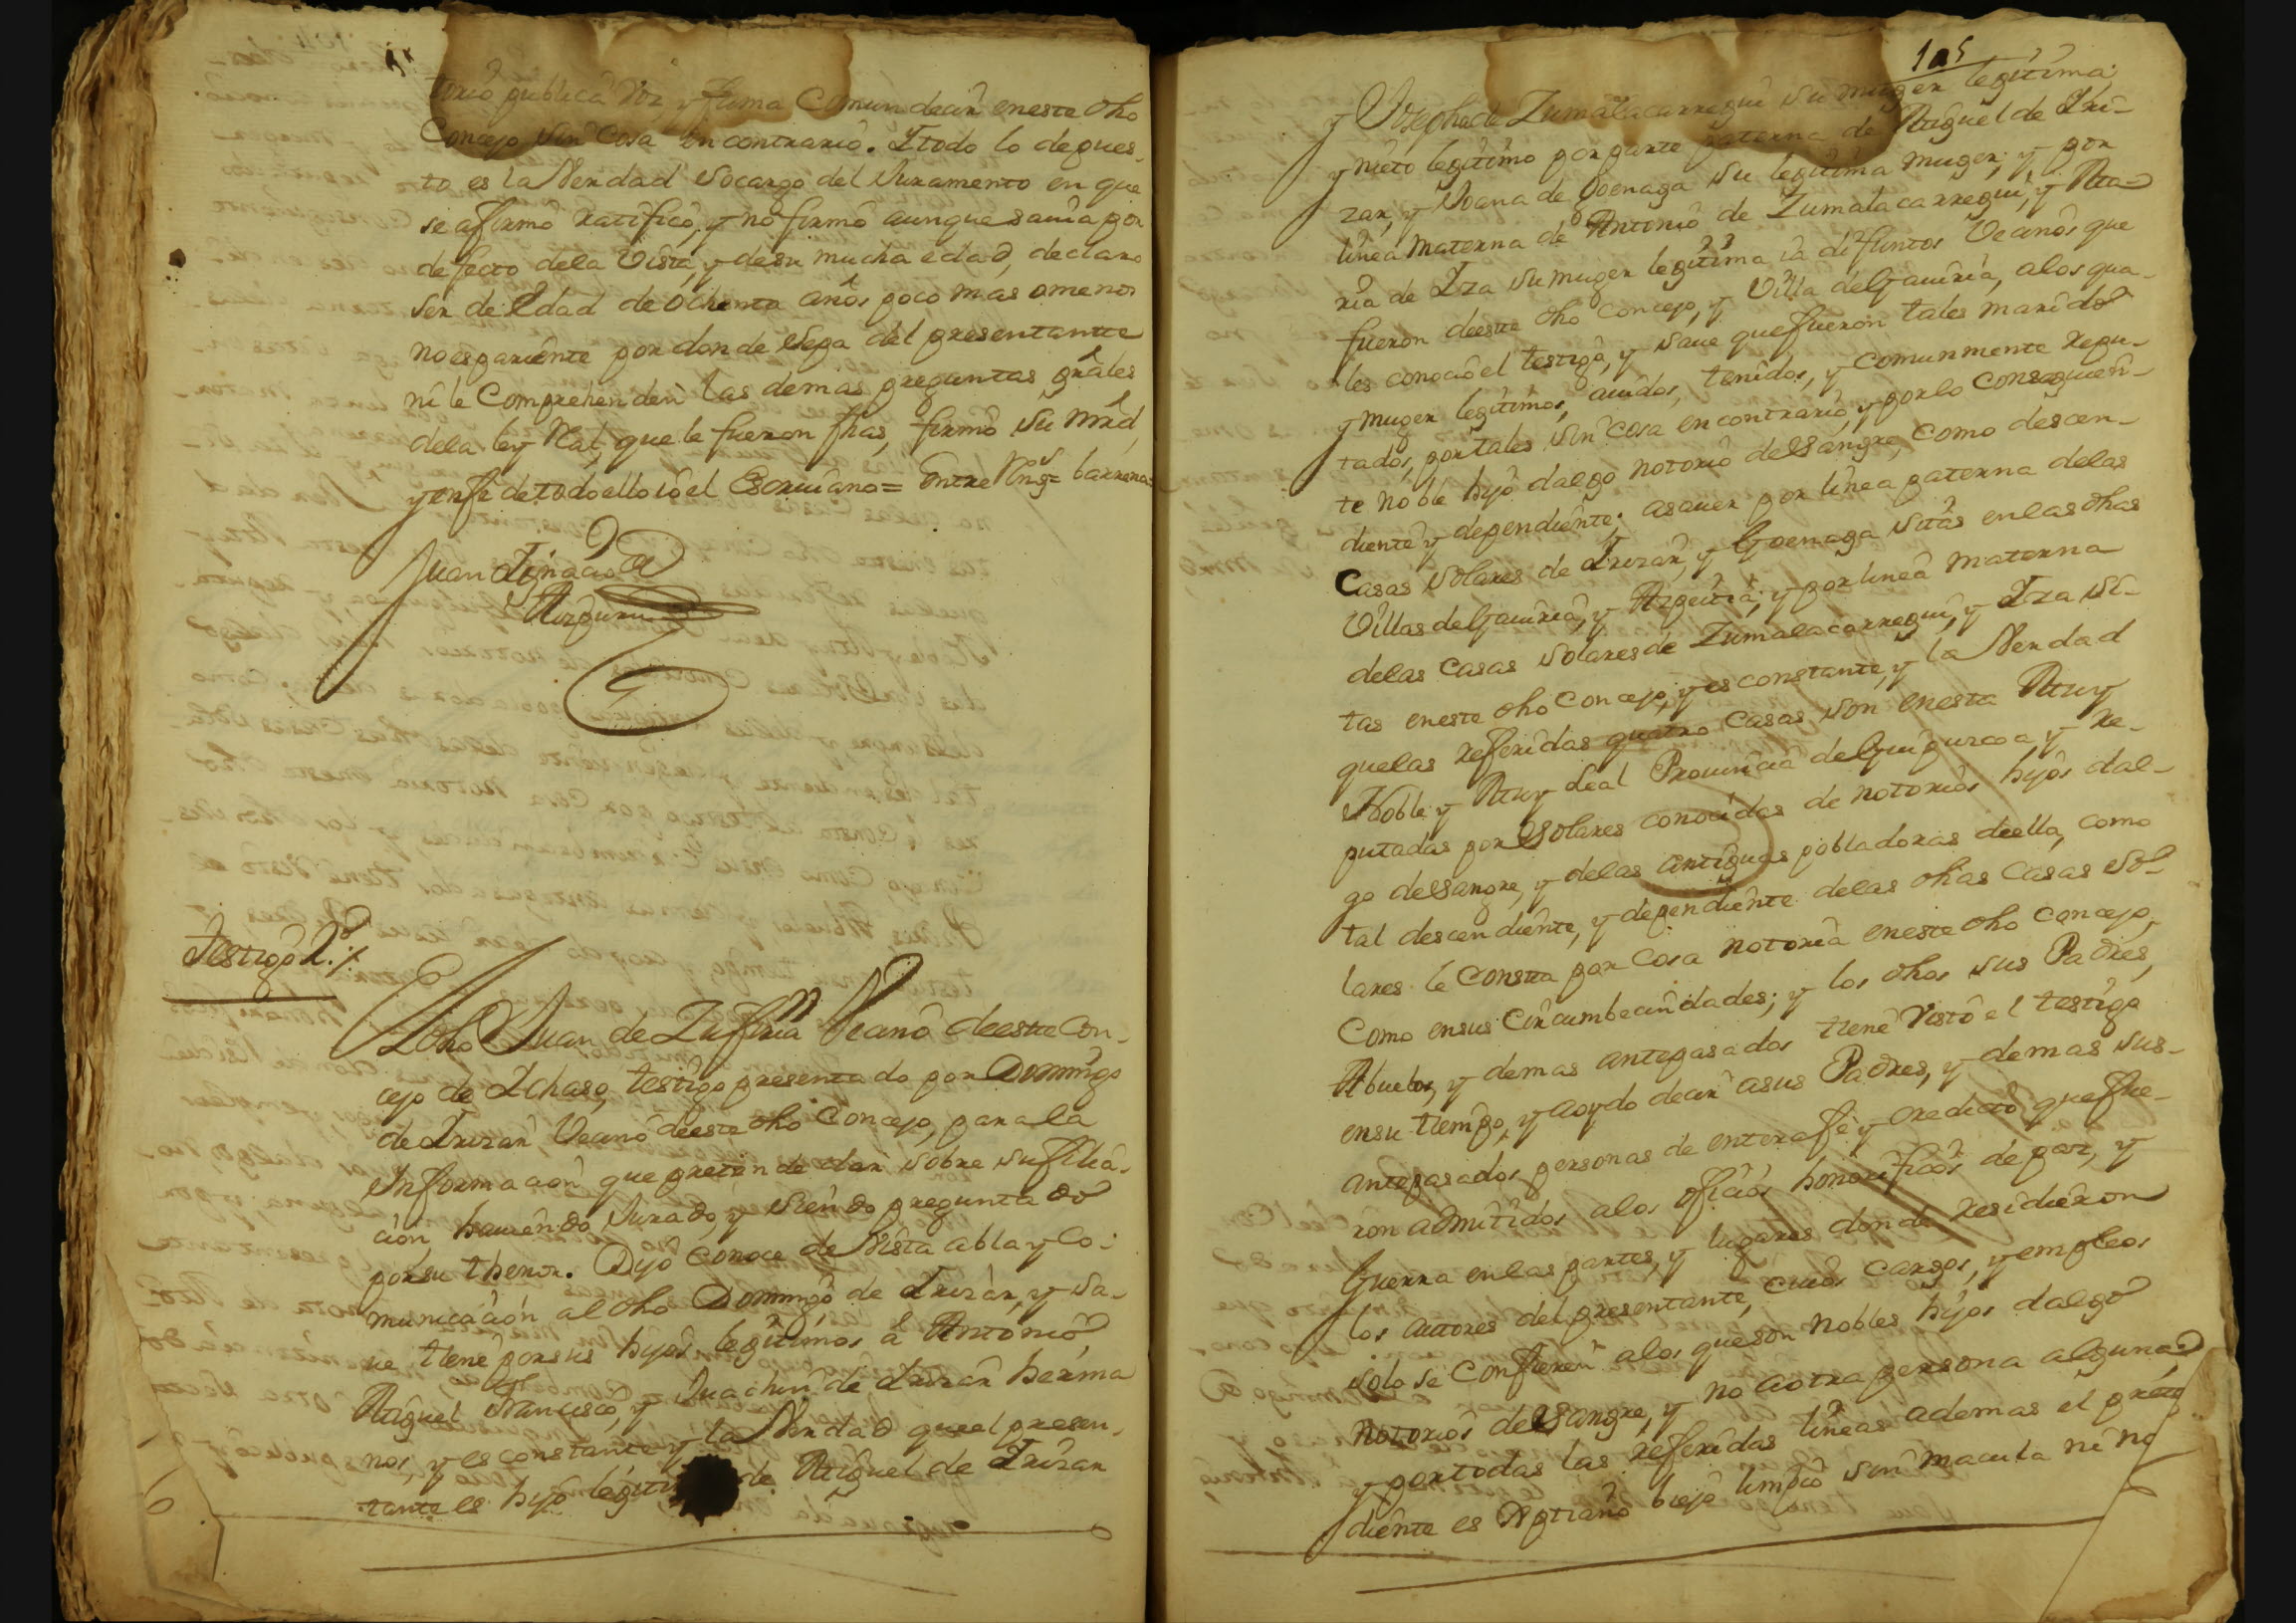 torio publica voz, y fama Comun decir en este dho
Concejo sin Cosa en contrario. I todo lo depues-
to es la Verdad socargo del Juramento en que
se afirmó ratificó, y no firmó aunque savia por
defecto de la Vista, y desu mucha edad, declaro
ser de Edad de ochenta años poco mas omenos
no es pariente por donde Sepa del presentante
ni le Comprehenden las demas preguntas grâles
dela ley Real, que le fueron fhas, firmó su Mrd,
y enfe de todo ello Yo el Escrivano = Entre Rng.s = barrena
Juan Ignacio de
Aizpuru
Testigo 2.º
El dho Juan de Zufiria Vecino de este Con-
cejo de Ichaso, testigo presentado por Domingo
de Irizar, Vecino de este dho Concejo, para la
Informacion que pretende dar sobre su filia-
cion haviendo Jurado, y siendo preguntado
por su thenor. Dijo Conoce de Vista abla y Co-
municacion al dho Domingo de Irizar, y sa-
ve tiene por sus hijos legitimos á Antonio
Miguel Francisco, y Juachin de Irizar herma
nos, y es constante y la Verdad que el presen-
tante es hijo legiti de Miguel de Irizar
105
y Josepha de Zumalacarregui su muger legitima;
y nieto legitimo por parte paterna de Miguel de Iri-
zar, y Joana de Goenaga su legitima muger; y por
linea Materna de Antonio de Zumalacarregui, y Ma-
ria de Iza su muger legitima ia difuntos Vecinos que
fueron de este dho Concejo, y Villa de Gaviria, alos qua-
les conoció el testigo, y save que fueron tales marido
y muger legitimos, avidos, tenidos, y comunmente repu-
tados, por tales sin cosa en contrario, y por lo Consiguien-
te noble hijo dalgo notorio de Sangre, como descen-
diente y dependiente; asaver por linea paterna delas
Casas Solares de Irizar, y Goenaga sitas en las dhas
Villas de Gaviria, y Azpeitia; y por linea Materna
delas Casas Solares de Zumalacarregui, y Iza si-
tas en este dho Concejo, y es constante, y la Verdad
que las referidas quatro Casas son en esta Muy
Noble y Muy Leal Provincia de Guipuzcoa, y re-
putadas por Solares conocidas de notorios hijos dal-
go de Sangre, y delas antiguas pobladoras de ella, como
tal descendiente, y dependiente delas dhas Casas So-
lares le Consta por Cosa notoria en este dho Concejo,
Como en sus Circumbecindades; y los dhos sus Padres,
Abuelos, y demas antepasados tiene Visto el testigo
en su tiempo, y aoydo decir asus Padres, y demas sus
antepasados personas de entera fe y credicto que fue-
ron admitidos alos oficios honorificos de paz, y
Guerra en las partes, y lugares donde residieron
los autores del presentante, cuios cargos, y empleos
solo se Confieren alos que son Nobles hijos dalgo
Notorios de Sangre, y no aotra persona alguna
y por todas las referidas lineas ademas el preten
diente es Xptiano biejo limpio sin macula ni no